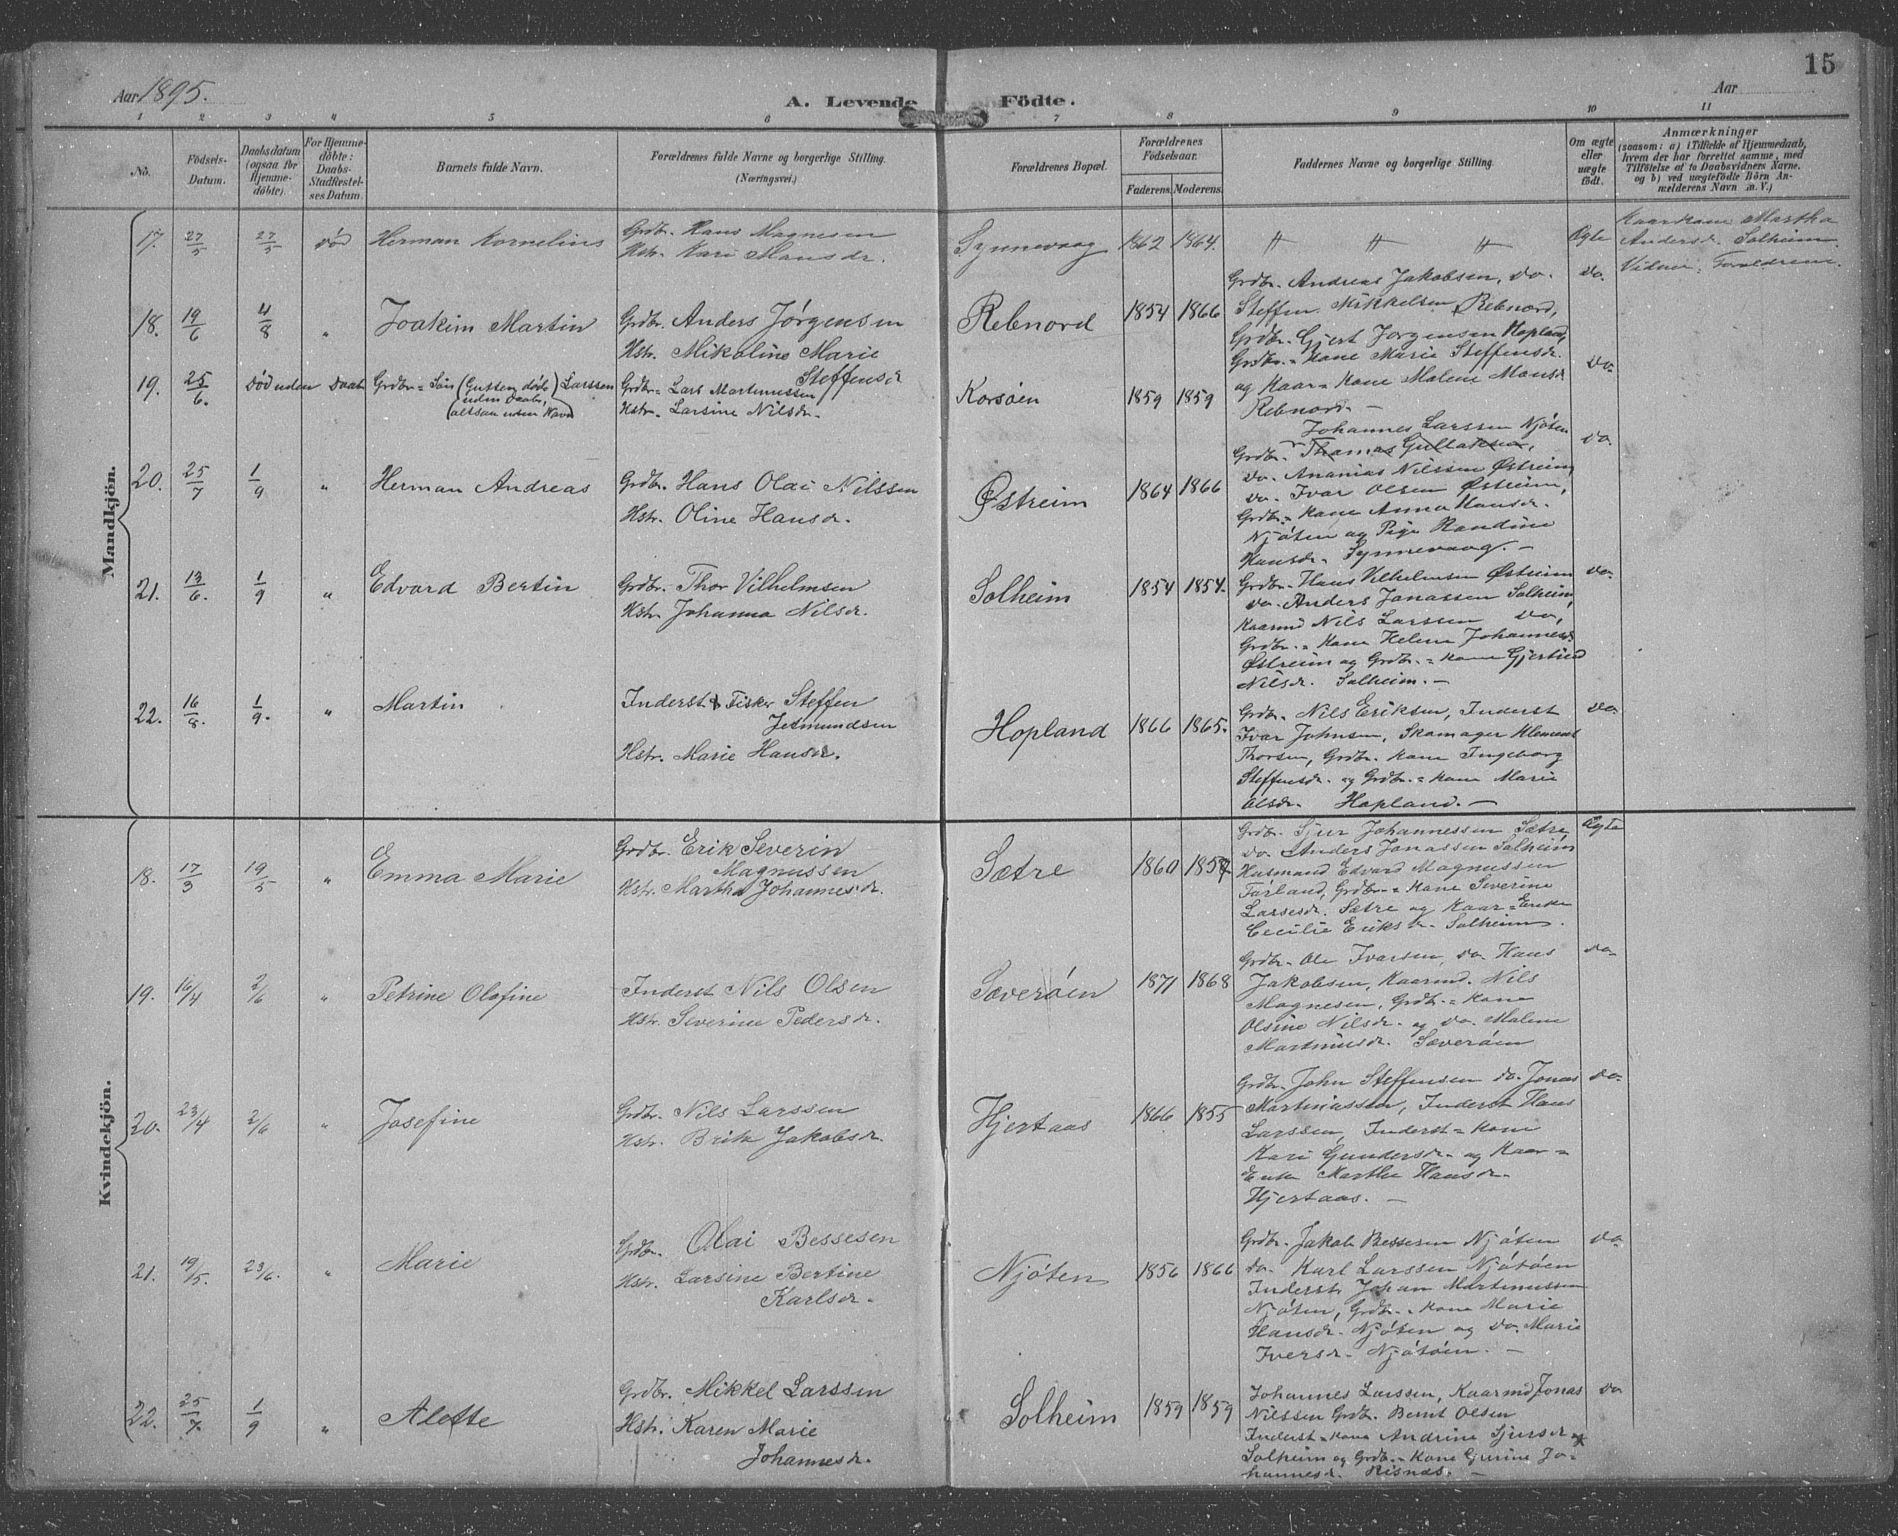 15
Aar 1895.
A. Levende Födte.
Aar
1 2 3 4 5 6 7 8 9 10 11
No.
Födsels-Datum.
Daabsdatum (ogsaa for Hjemme-döbte).
For Hjemme-döbte: Daabs-Stadfæstel-ses Datum.
Barnets fulde Navn.
Forældrenes fulde Navne og borgerlige Stilling. (Næringsvei.)
Forældrenes Bopæl.
Forældrenes Födselsaar.
Faderens. Moderens.
Faddernes Navne og borgerlige Stilling.
Om ægte eller uægte födt.
Anmærkninger
(saasom: a) i Tilfælde af Hjemmedaab,
hvem der har forrettet samme, med
Tilföielse af to Daabsvidners Navne.
og b) ved uægtefödte Börn An-
melderens Navn m. V.)
Mandkjön.
17. 27/5 27/5 död Herman Kornelius
Grdbr. Hans Magnesen
Hstr. Kari Mansdr.
Synnevaag 1862 1864. " " " Ægte
Kaarkone Martha
Andersdr. Solheim.
Vidner: Forældrene.
18. 19/6 4/8 " Joakim Martin
Grdbr. Anders Jørgensen
Hstr. Mikoline Marie
Steffensdr
Rebnord 1854 1866
Grdbr. Andreas Jakobsen, do. do.
Steffen Mikkelsen Rebnord,
Grdbr. Gjert Jørgensen Hopland,
Grdbr.-Kone Marie Steffensdr.
og Kaar-Kone Malene Monsdr
Rebnord. —
19. 25/6. Død uden Daab Grdbr.-Søn (Gutten døde uden Daab, altsaa uden Navn) Larssen
Grdbr. Lars Martinussen
Hstr. Larsine Nilsdr.
Korsöen 1859 1859 do.
20. 25/7 1/9 " Herman Andreas
Grdbr. Hans Olai Nilssen
Hstr. Oline Hansdr.
Østreim 1864 1866
Johannes Larssen Njöten
Grdbr. Thomas Gullaksen, do.
do. Ananias Nilssen Østreim,
do. Ivar Olsen Østreim,
Grdbr.-Kone Anna Hansdr.
Njöten og Pige Randine
Hansdr. Synnevaag. —
21. 13/6. 1/9 " Edvard Bertin
Grdbr. Thor Vilhelmsen
Hstr. Johanna Nilsdr.
Solheim 1854 1854.
Grdbr. Hans Vilhelmsen Østreim do.
do. Anders Jonassen Solheim,
Kaarmd Nils Larssen do,
Grdbr.-Kone Helene Johannesdr
Østreim og Grdbr.-Kone Gjertrud
Nilsdr. Solheim. —
22. 16/8. 1/9. " Martin
Inderst & Fisker Steffen
Jetmundsen
Hstr. Marie Hansdr.
Hopland 1866 1865.
Grdbr. Nils Eriksen, Inderst do.
Ivar Johnsen, Skomager Klement
Thorsen, Grdbr. Kone Ingeborg
Steffensdr. og Grdbr.-Kone Marie
Olsdr. Hopland. —
Kvindekjön.
18. 17/3 19/5 " Emma Marie
Grdbr. Erik Severin
Magnussen
Hstr. Martha Johannesdr.
Sætre 1860 1857
Grdbr. Sjur Johannessen Sætre, Ægte
do. Anders Jonassen Solheim
Husmand Edvard Magnussen
Førland, Grdbr.-Kone Severine
Larsesdr. Sætre og Kaar-Enke
Cecilie Eriksdr. Solheim.
19. 16/4 2/6 " Petrine Olofine
Inderst Nils Olsen
Hstr. Severine Pedersdr.
Sæveröen 1871 1868
Grdbr. Ole Ivarsen, do. Hans do.
Jakobsen, Kaarmd. Nils
Magnesen, Grdbr.-Kone
Olsine Nilsdr. og do. Malene
Martinusdr. Sæveröen
20. 23/4 2/6 " Josefine
Grdbr. Nils Larssen
Hstr. Brita Jakobsdr.
Hjertaas 1866 1855
Grdbr. John Steffensen do. Jonas do.
Martinussen, Inderst Hans
Larssen, Inderst-Kone
Kari Gundersdr. og Kaar-
Enke Marthe Hansdr.
Hjertaas. —
21. 19/5. 23/6. " Marie
Grdbr. Olai Bessesen
Hstr. Larsine Bertine
Karlsdr.
Njöten 1856 1866
Grdbr. Jakob Bessesen Njöten do.
do. Karl Larssen Njötöen
Inderst Johan Martinussen
Njöten, Grdbr.-Kone Marie
Hansdr. Njöten og do. Marie
Iversdr. Njötöen. —
22. 25/7. 1/9 " Alette
Grdbr. Mikkel Larssen
Hstr. Karen Marie
Johannesdr.
Solheim 1859 1859
Johannes Larssen, Kaarmd Jonas do
Nilssen Grdbr. Bernt Olsen
Inderst-Kone Andrine Sjursdr
Solheim og Grdbr.-Kone Gjurine Jo-
hannesdr. Risnæs. —